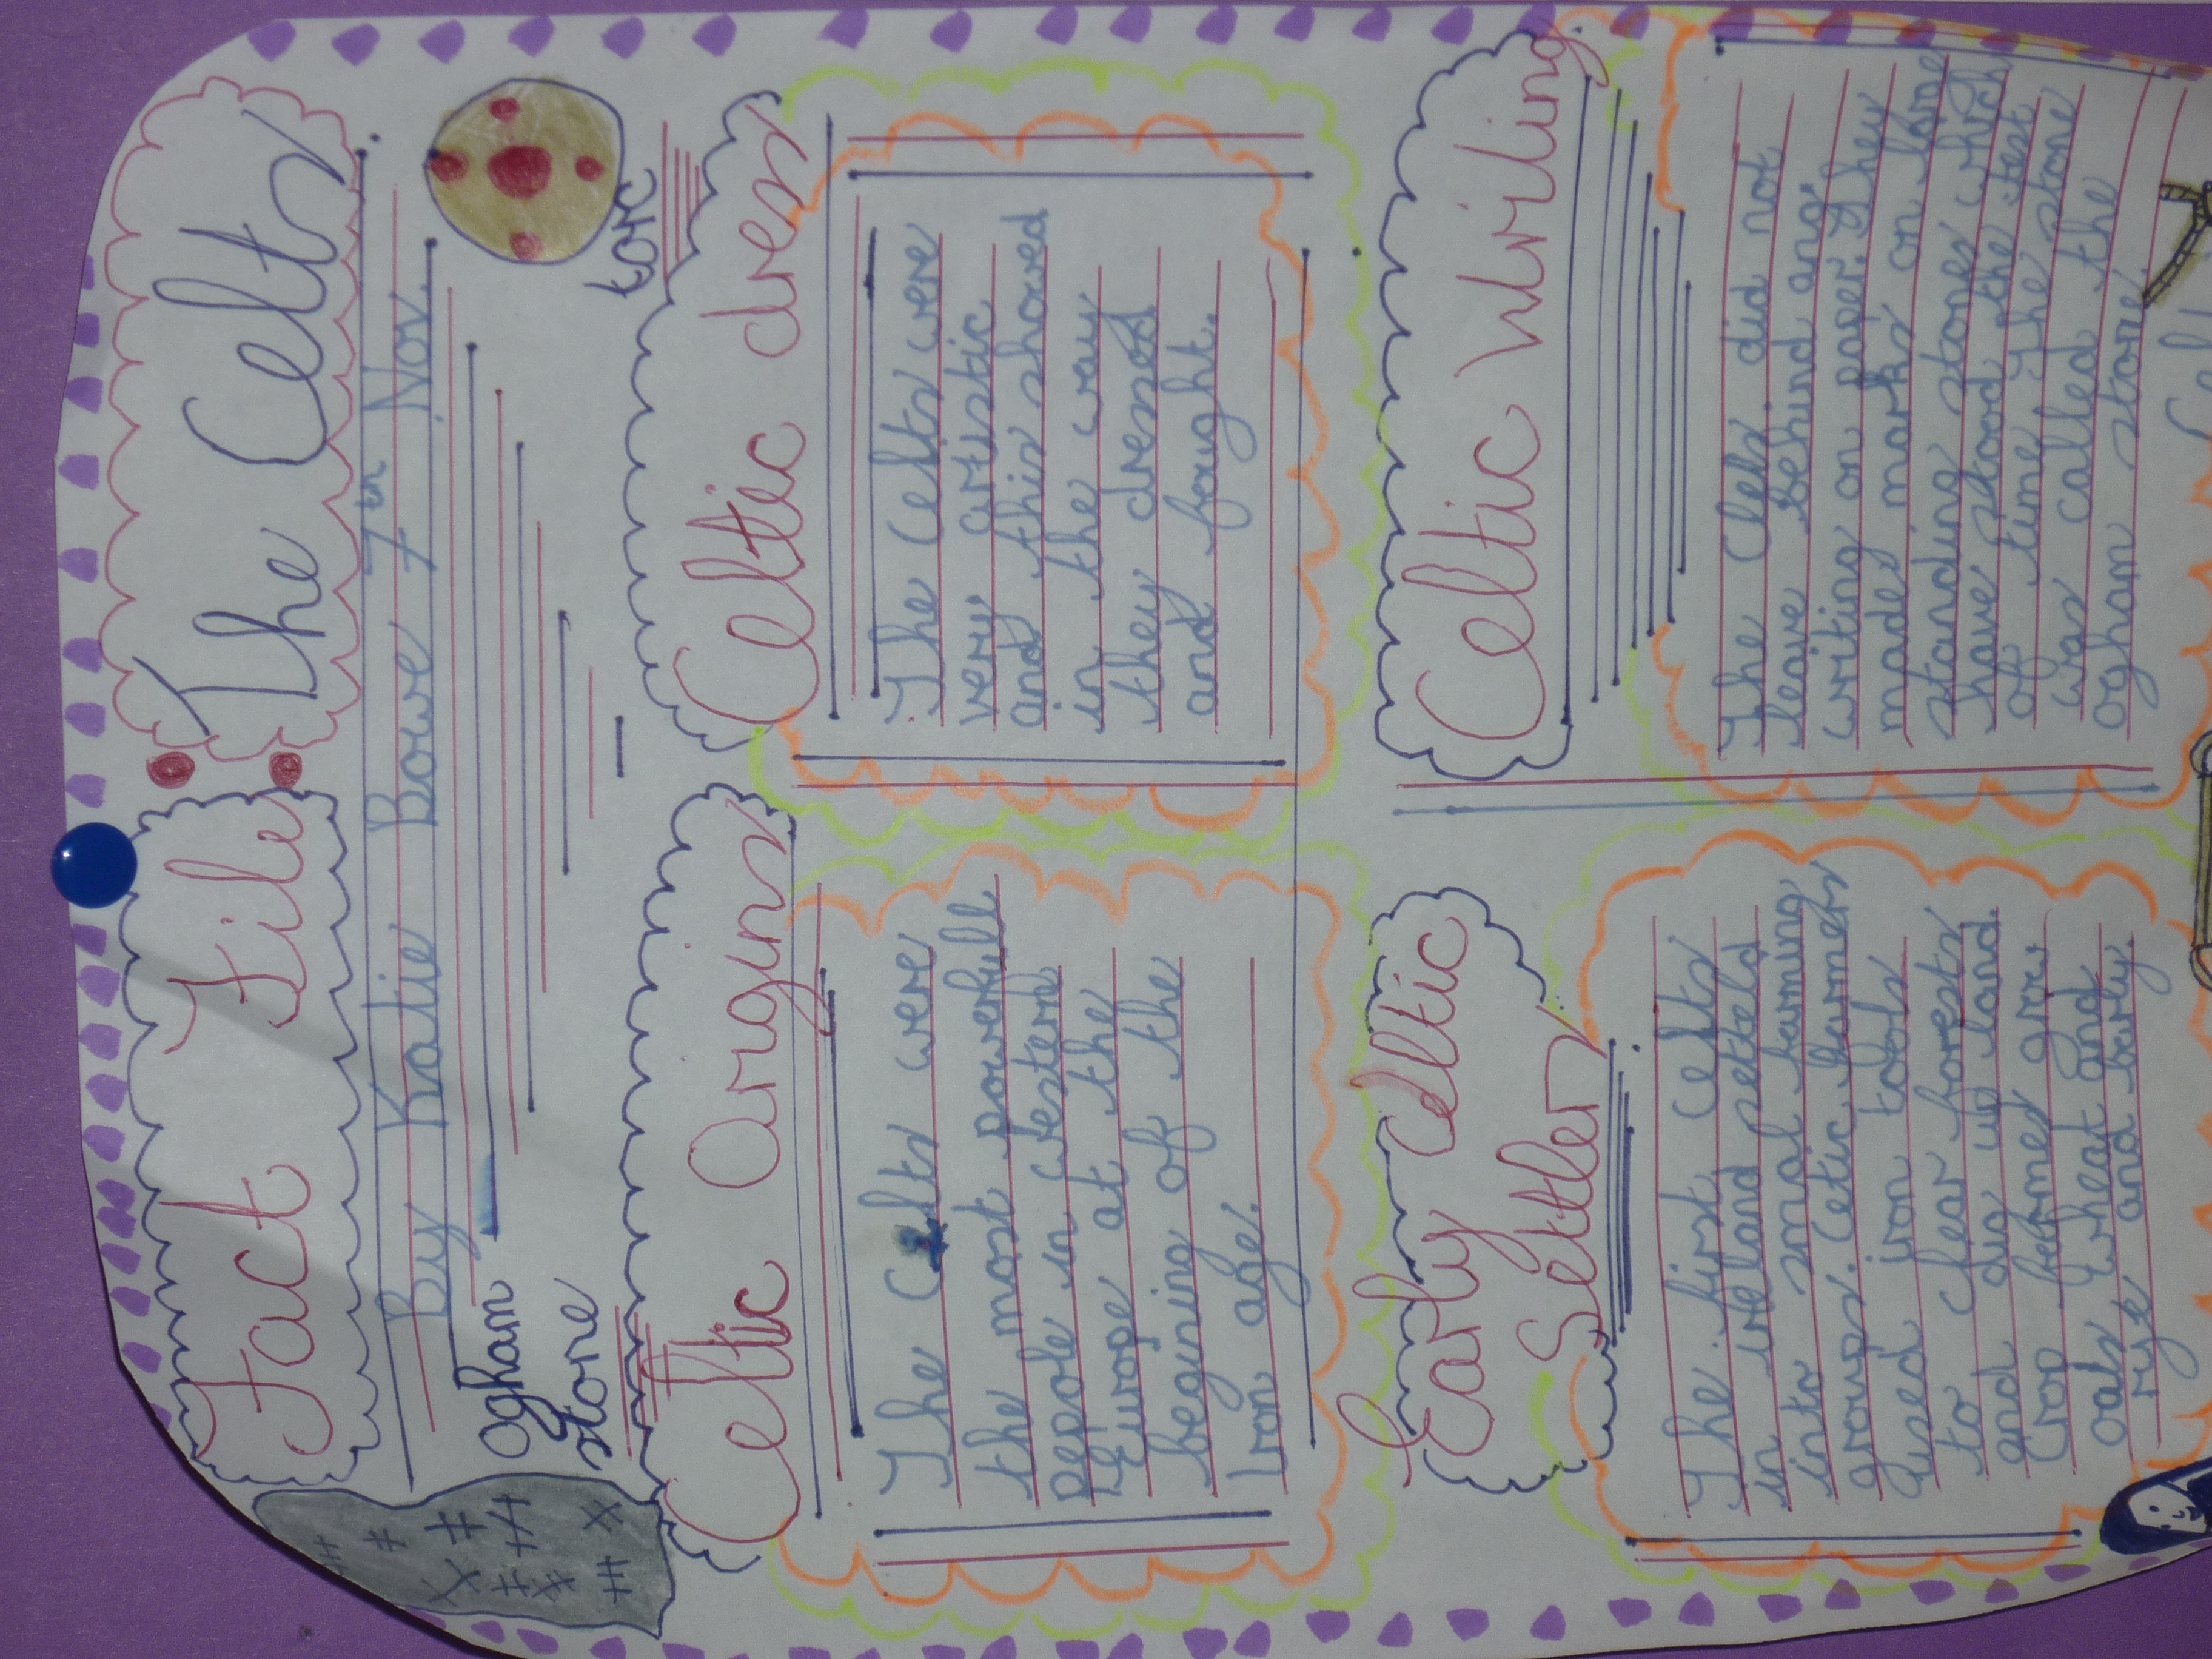 Fact File
The Celts
By Katie Bowe 7th Nov.
ogham
stone
torc
Celtic Origins
The Celts were
the most powerfull
pepole in western
Europe at the
begining of the
Iron age.
Celtic dress
The Celts were
very artistic
and this showed
in the way
they dressed
and fought.
Early Celtic
Settlers
The first Celts
in ireland setteld
into smal farming
groups. Cetic farmers
used iron tools
to clear forests
and dig up land
Crop farmes grew
oats wheat and
rye and barly
Celtic Writing
The Clets did not
leave behind any
writing on paper. They
made marks on large
standing stones which
have stood the test
of time. The stone
was called the
ogham stone.